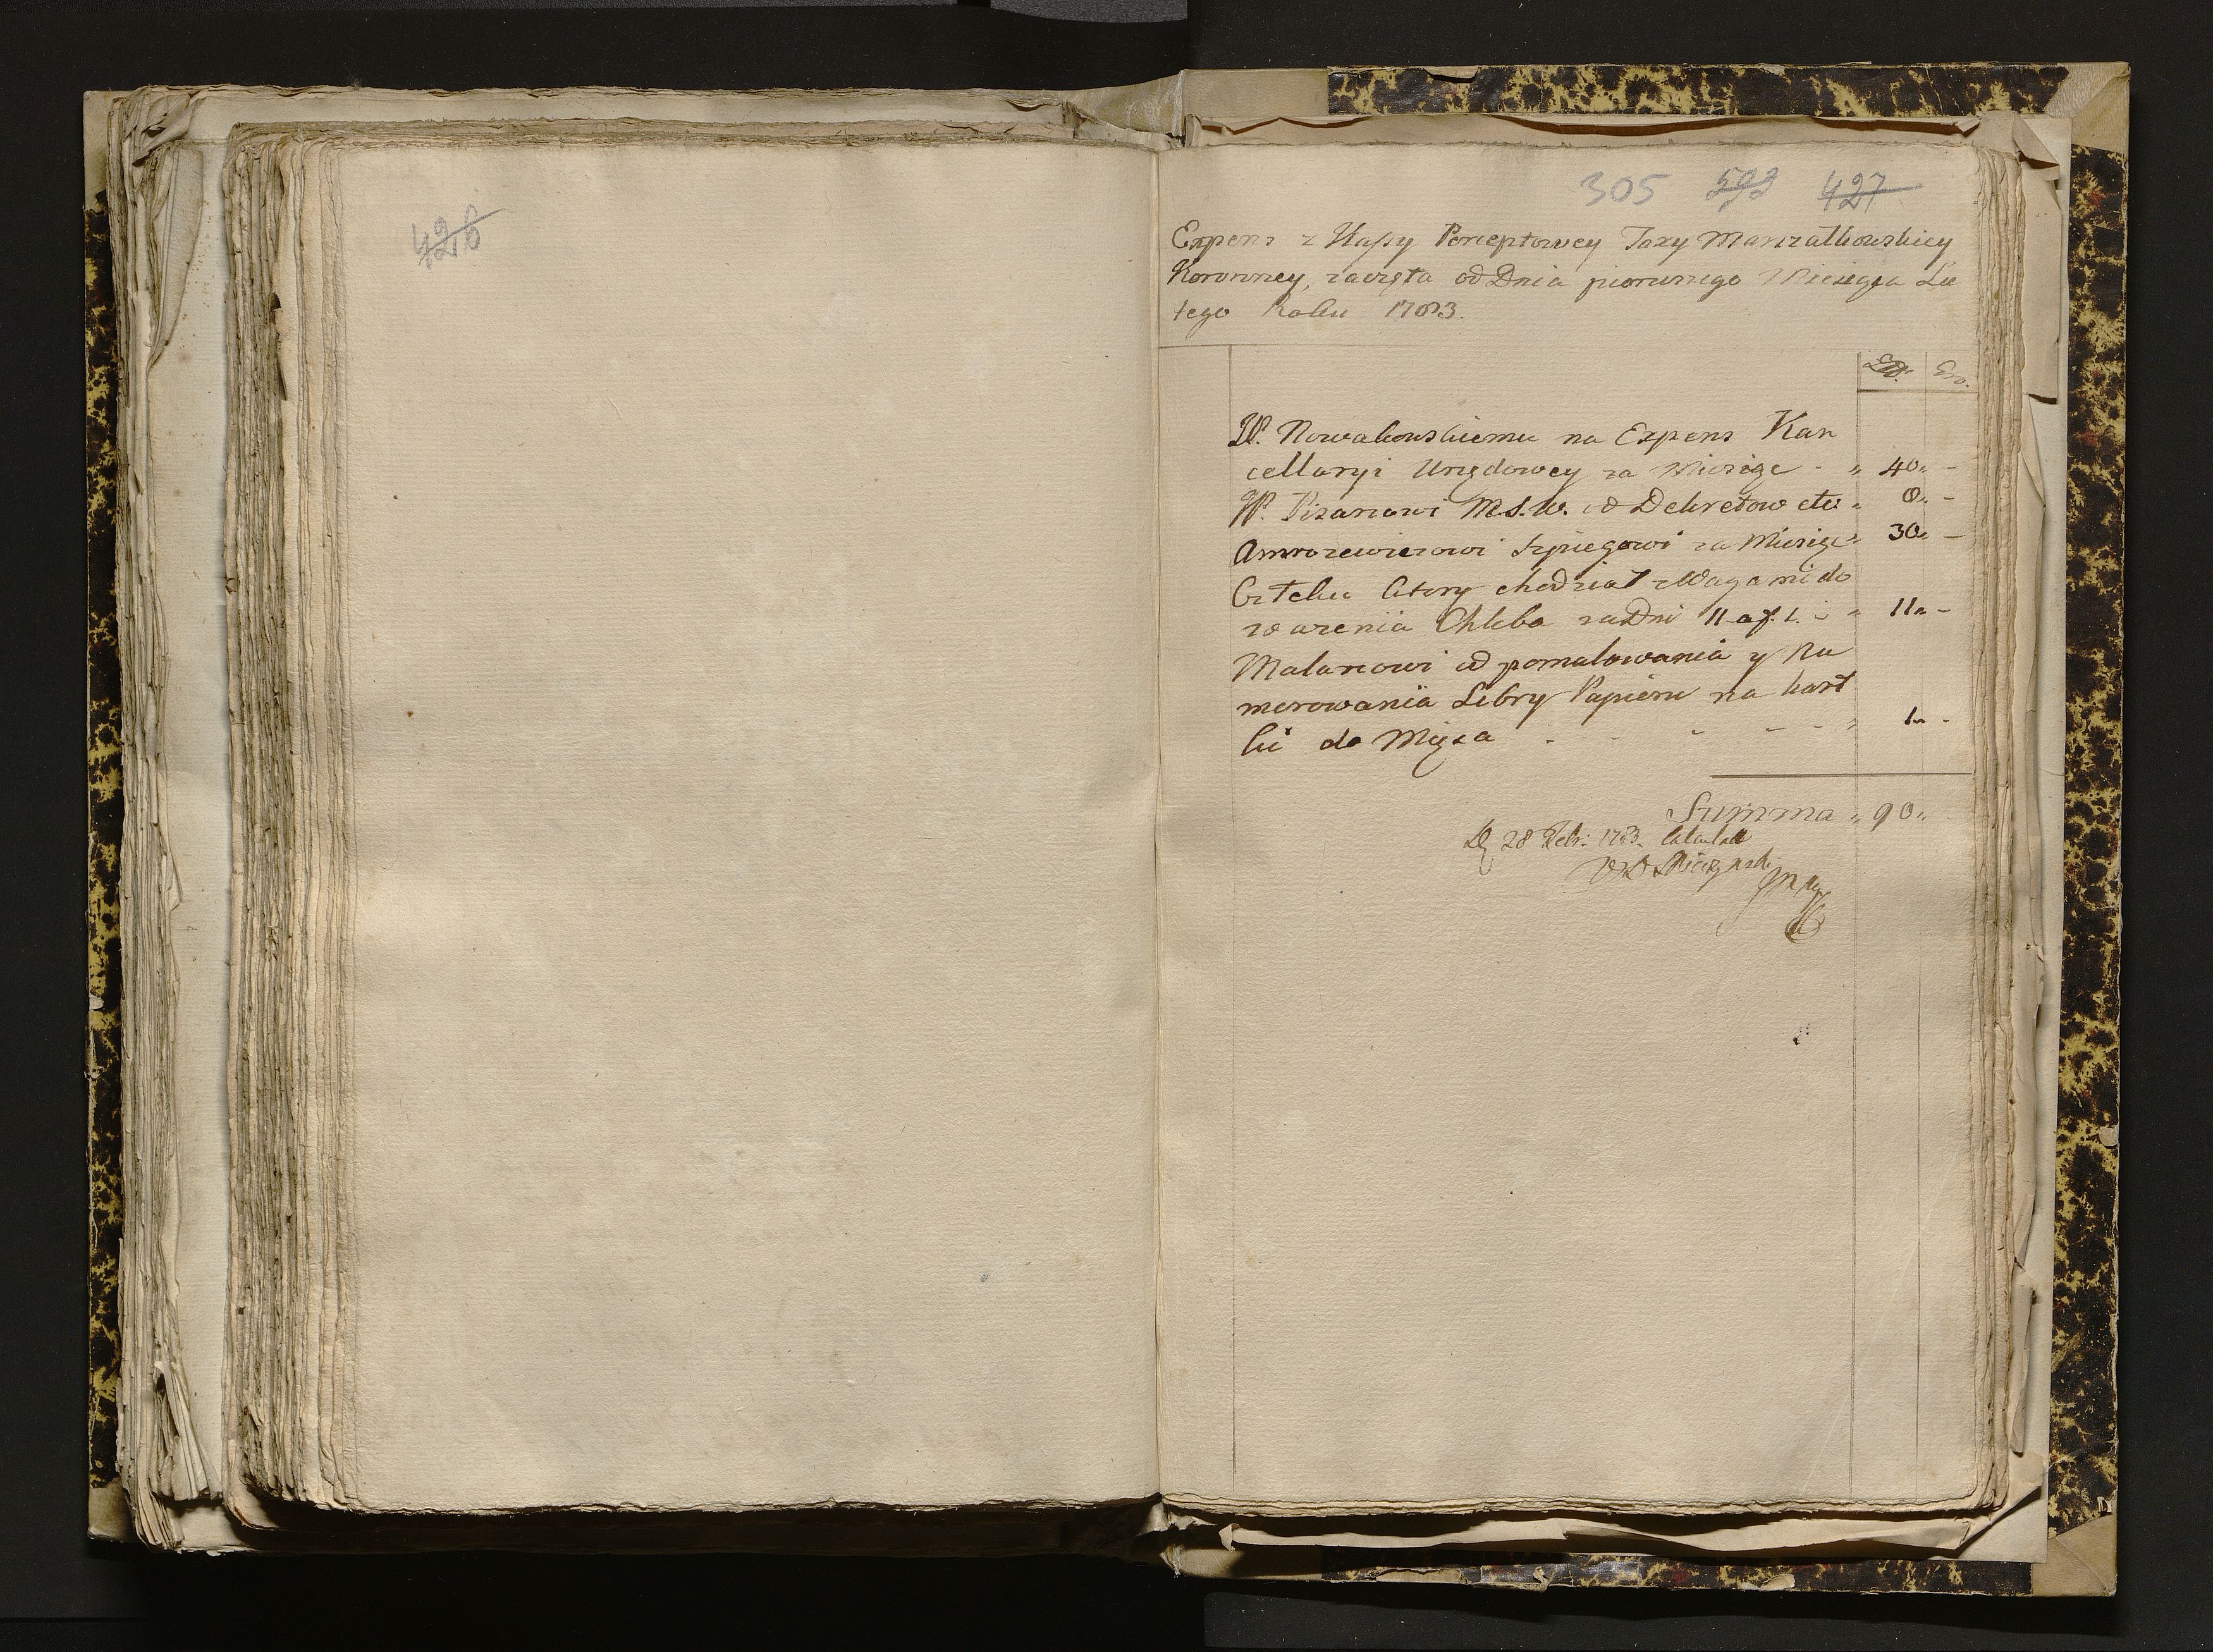 426
305 593 427
Expens z Kassy Perceptowey Taxy Marszałkowskiey
Koronney, zaczęta od Dnia pierwszego Miesiąca Lu
tego Roku 1783.
Zł. Gr.
W. Nowakowskiemu na Expens Kan
cellaryi Urzędowey za Miesiąc - „ 40 „ -
W. Pisarzowi M.S.W. od Dekretow etc „ 8 „ -
Amrozewiczowi Szpiegowi za Miesiąc „ 30 „ -
Człeku ktory chodział z Wagami do
ważenia Chleba za Dni 11 a f. 1. - „ 11 „ -
Malarzowi od pomalowania y Nu
merowania Libry Papieru na kart
ki do Mięsa - - - - - „ 1 „ -
Summa „ 90 „
D. 28 Febr: 1783.